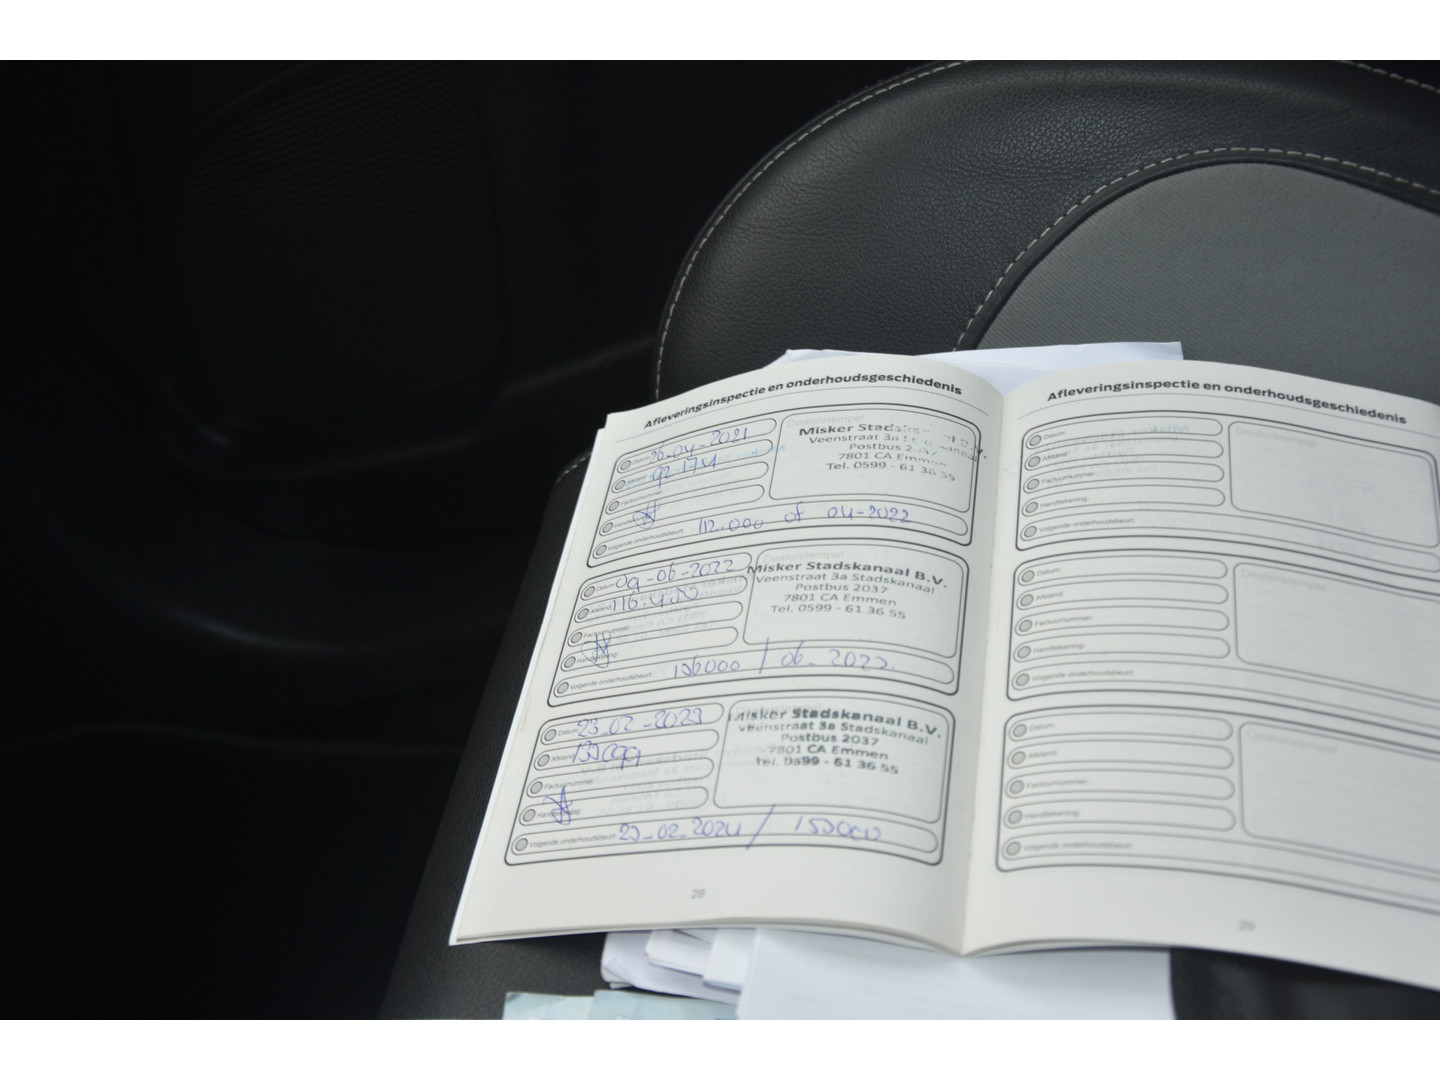 Afleveringsinspectie en onderhoudsgeschiedenis
Datum: 26-04-2021
Afstand: 92-174
Factuurnummer:
Handtekening:
Volgende onderhoudsbeurt: 112.000 of 04-2022
Dealerstempel
Misker Stadskanaal B.V.
Veenstraat 3a Stadskanaal
Postbus 2037
7801 CA Emmen
Tel. 0599 - 61 36 55
Datum: 09-06-2022
Afstand:
Factuurnummer:
Handtekening:
Volgende onderhoudsbeurt: 136000 / 06-2023
Dealerstempel
Misker Stadskanaal B.V.
Veenstraat 3a Stadskanaal
Postbus 2037
7801 CA Emmen
Tel. 0599 - 61 36 55
Datum: 23-02-2023
Afstand: 133099
Factuurnummer:
Handtekening:
Volgende onderhoudsbeurt: 23-02-2024 / 153000
Misker Stadskanaal B.V.
Veenstraat 3a Stadskanaal
Postbus 2037
7801 CA Emmen
Tel. 0599 - 61 36 55
28
Afleveringsinspectie en onderhoudsgeschiedenis
Datum:
Afstand:
Factuurnummer:
Handtekening:
Volgende onderhoudsbeurt:
Dealerstempel
Datum:
Afstand:
Factuurnummer:
Handtekening:
Volgende onderhoudsbeurt:
Dealerstempel
Datum:
Afstand:
Factuurnummer:
Handtekening:
Volgende onderhoudsbeurt:
Dealerstempel
29